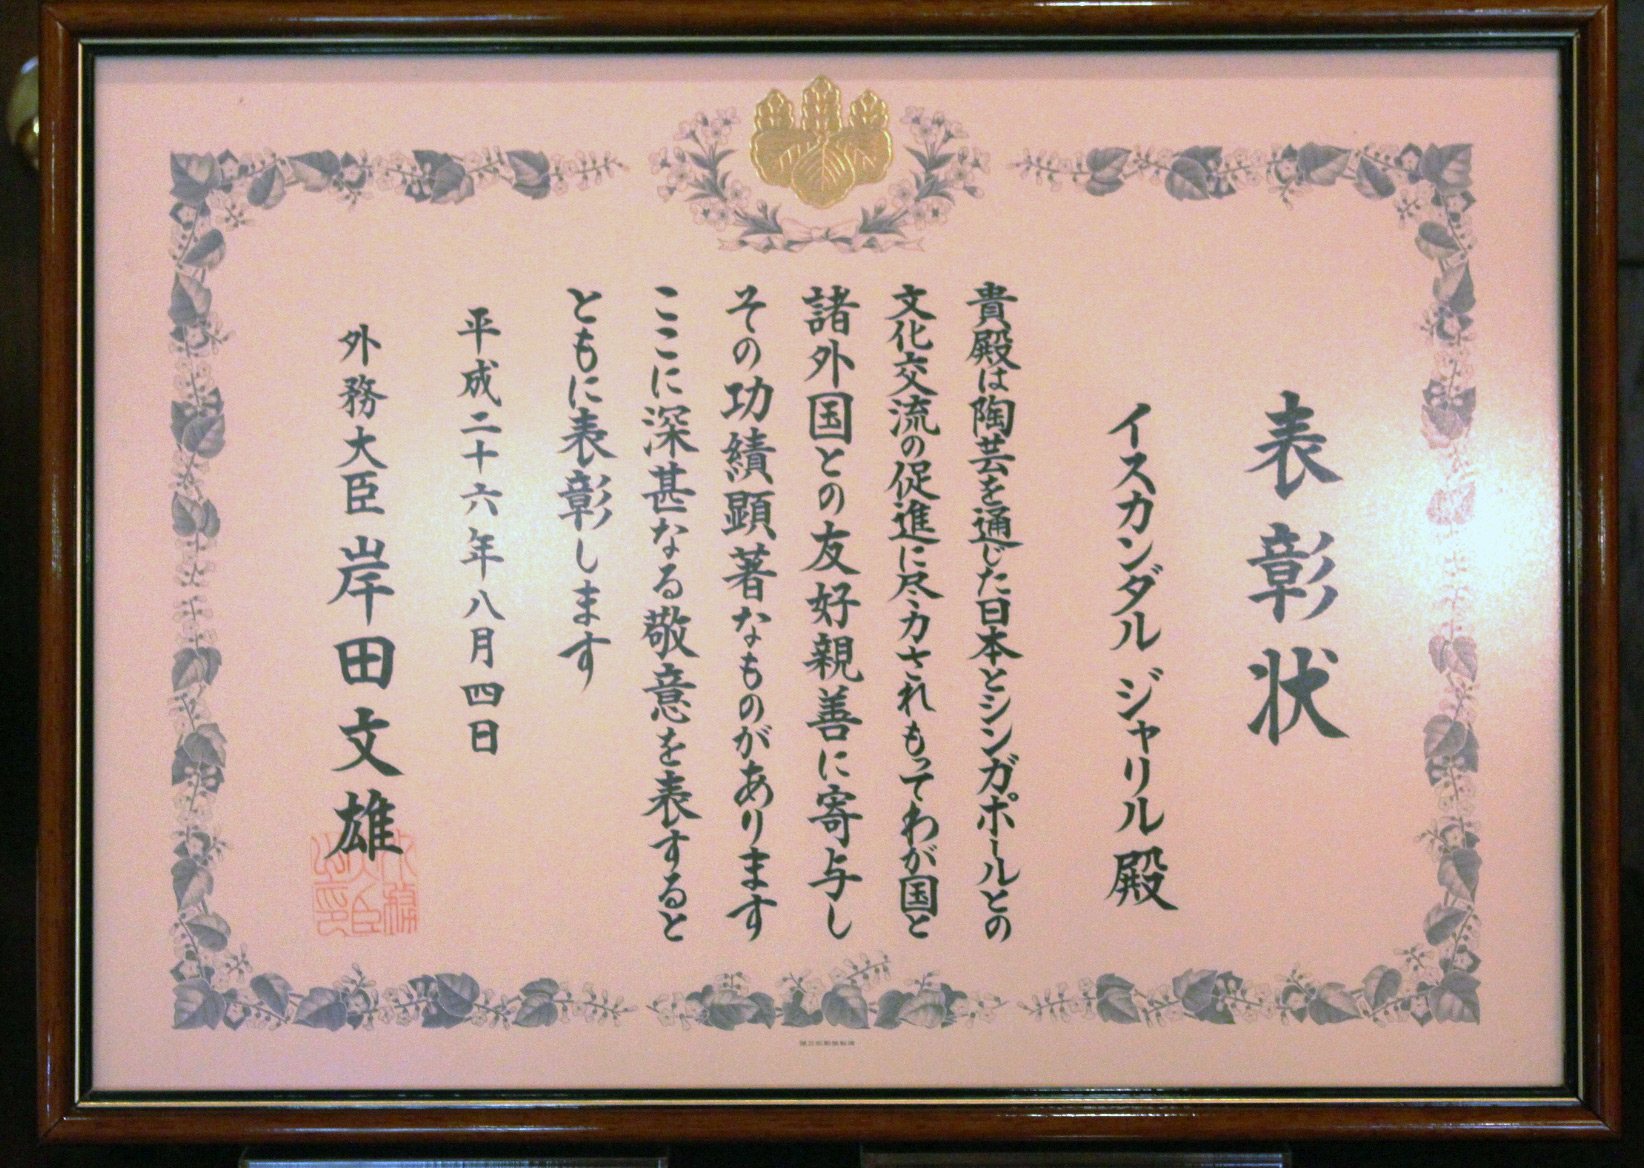 表彰状
イスカンダル ジャリル 殿
貴殿は陶芸を通じた日本とシンガポールとの
文化交流の促進に尽力されもってわが国と
諸外国との友好親善に寄与し
その功績顕著なものがあります
ここに深甚なる敬意を表すると
ともに表彰します
平成二十六年八月四日
外務大臣 岸田文雄